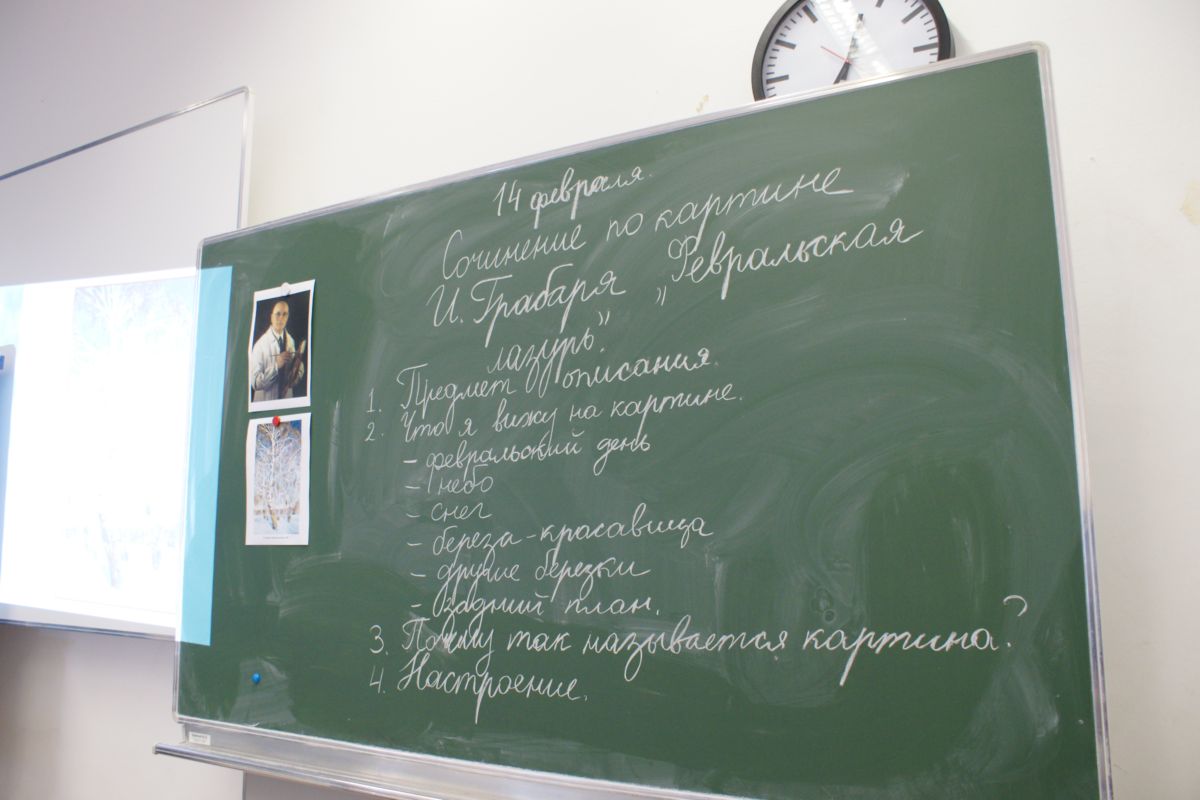 14 февраля.
Сочинение по картине
И. Грабаря „Февральская
лазурь."
1. Предмет описания.
2. Что я вижу на картине.
- февральский день
- небо
- снег
- береза-красавица
- другие березки
- задний план.
3. Почему так называется картина?
4. Настроение.